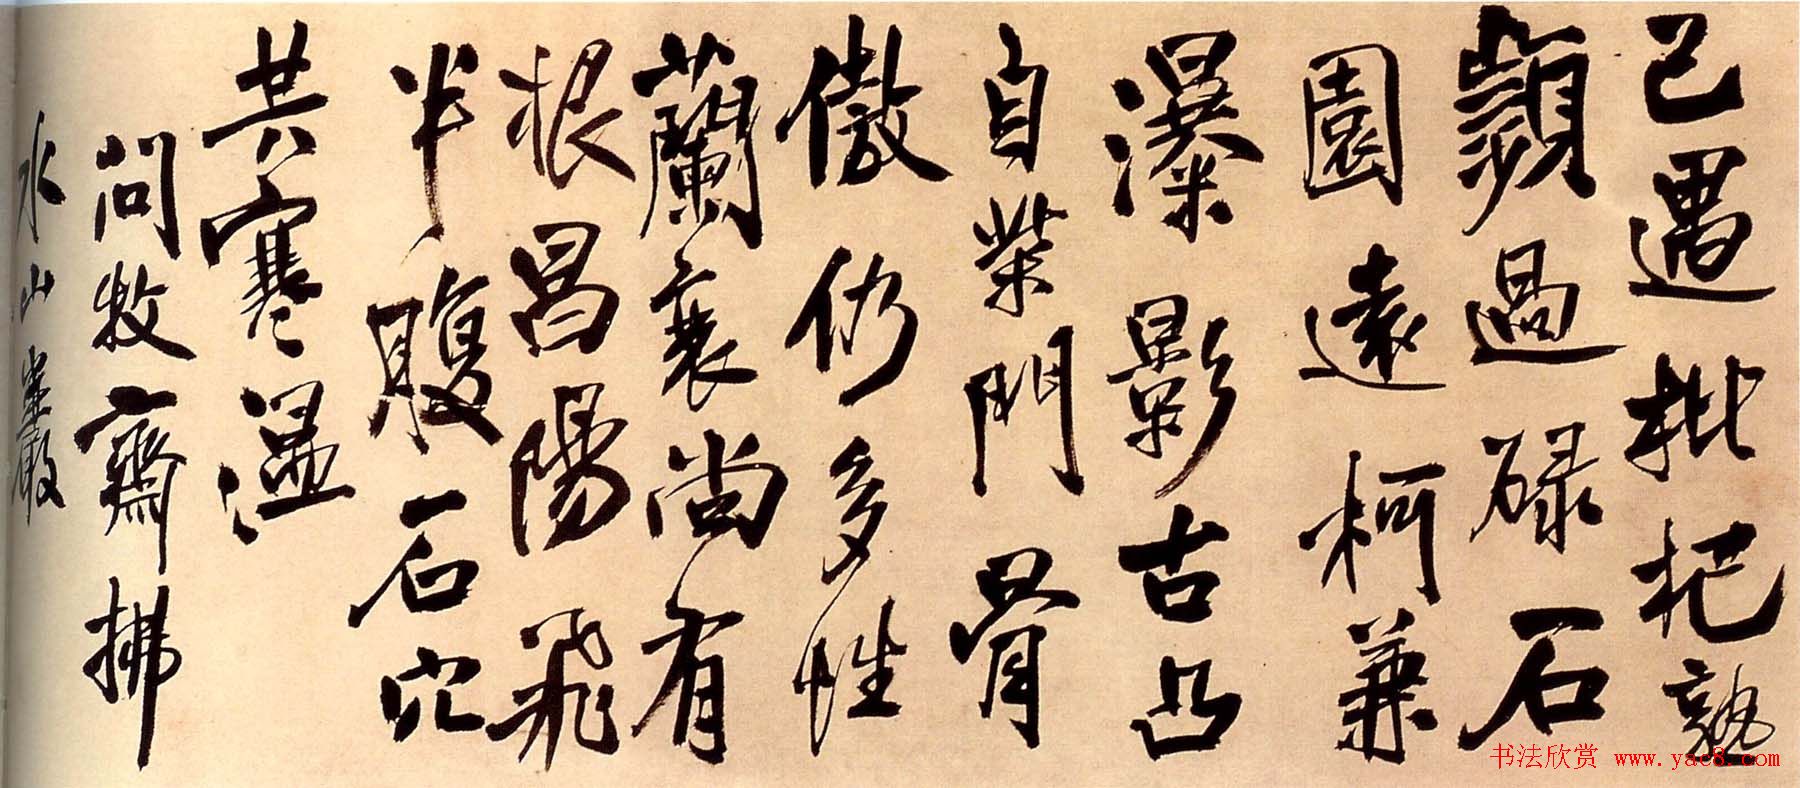 已遇枇杷熟
頻過碌石
園遠柯兼
瀑影古凸
自柴門骨
傲仍多性
蘭衰尚有
根昌陽飛
半腹石穴
共寒溫
問牧齋拂
水山巖
书法欣赏 www.yac8.com